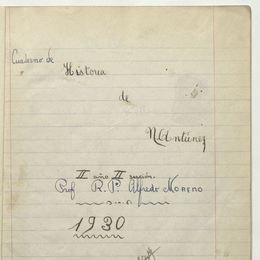 Cuaderno de
Historia
de
N. Antúnez
II año II sección.
Prof R. P. Alfredo MORENO
1930